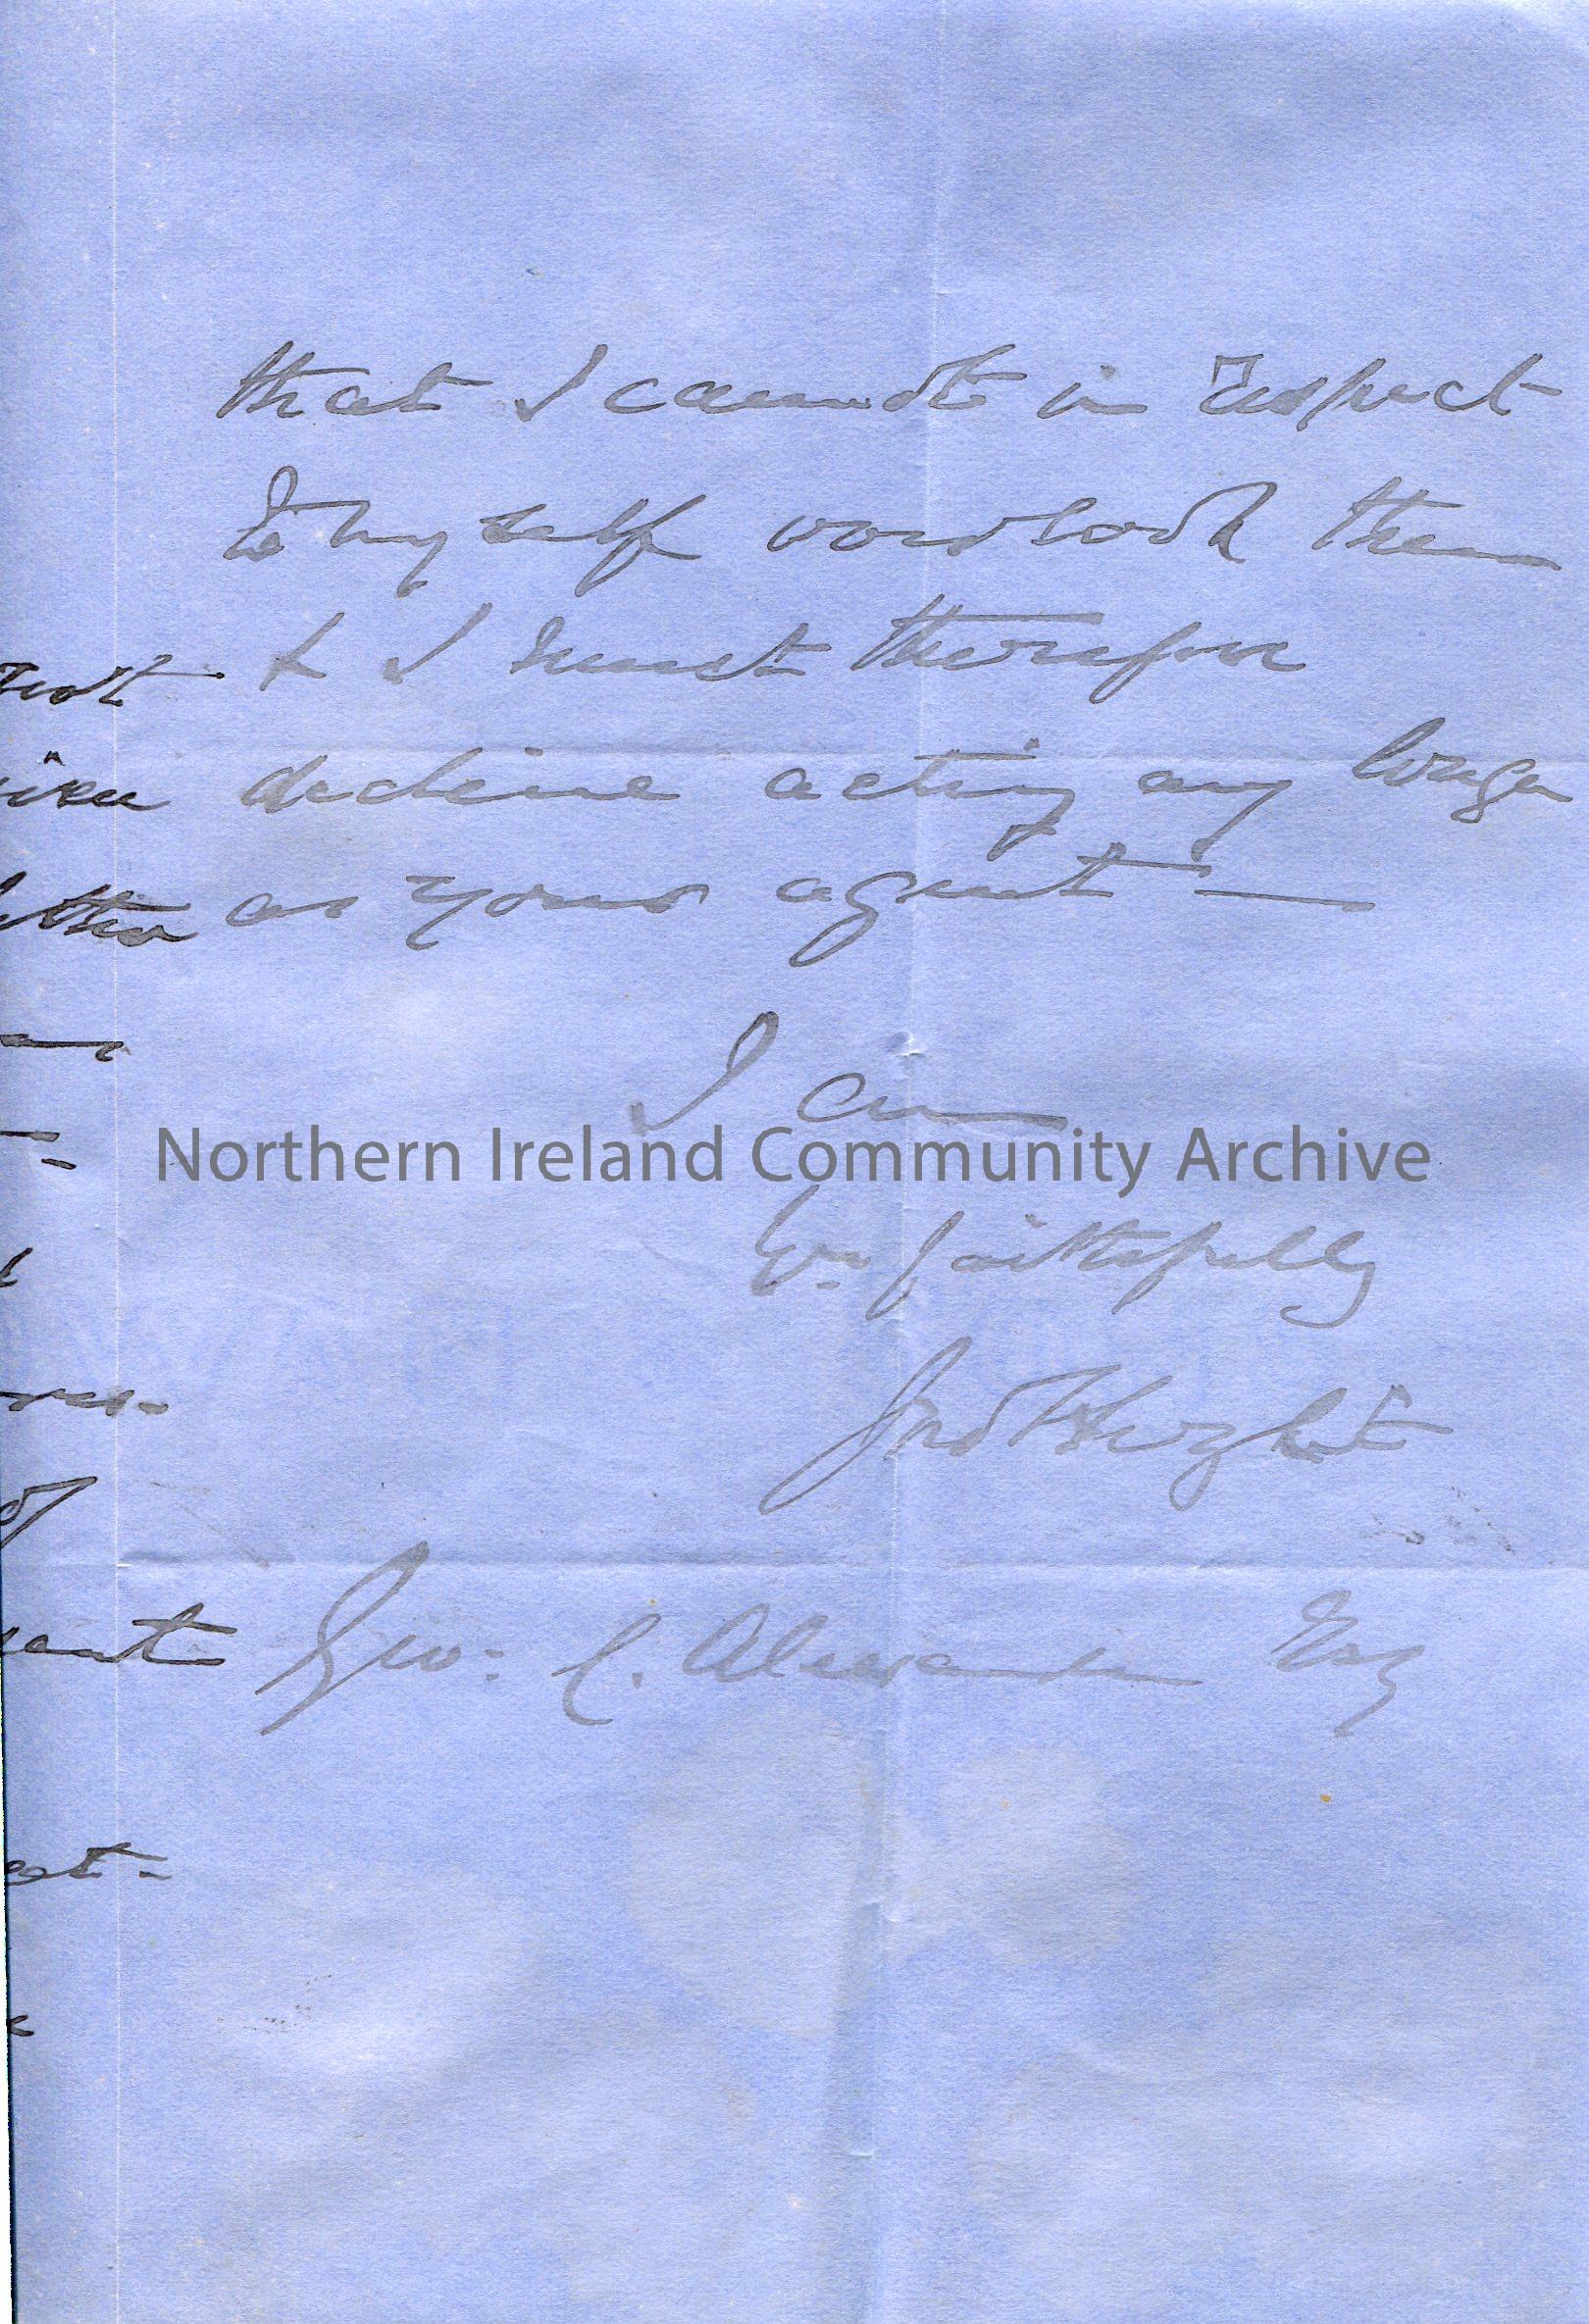 that I cannot in respect
to myself overlook them
& I must therefore
decline acting any longer
as your agent —
I am
Northern Ireland Community Archive
Yrs faithfully
Jno
Geo: C. Alexander Esq